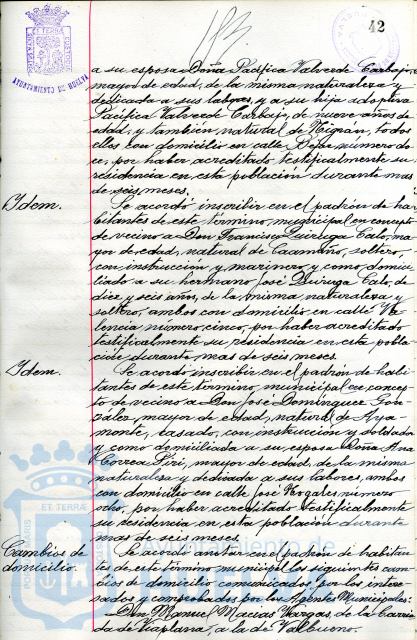 42
AYUNTAMIENTO DE HUELVA
a su esposa Doña Pacífica Valverde Carbajo,
mayor de edad, de la misma naturaleza y
dedicada a sus labores, y a su hija adoptiva
Pacífica Valverde Carbajo, de nueve años de
edad, y también natural de Nigrán, todos
ellos con domicilio en calle Bejer número do-
ce, por haber acreditado testificalmente su
residencia en esta población durante mas
de seis meses.
Idem.
Se acordó inscribir en el padrón de ha-
bitantes de este término municipal, en concepto
de vecino a Don Francisco Quiroga Calo, ma-
yor de edad, natural de Caamaño, soltero,
con instrucción y marinero, y como domici-
liado a su hermano José Quiroga Calo, de
diez y seis años, de la misma naturaleza y
soltero, ambos con domicilio en calle Va-
lencia número cinco, por haber acreditado
testificalmente su residencia en esta pobla-
ción durante mas de seis meses.
Idem.
Se acordó inscribir en el padrón de habi-
tantes de este término municipal en concep-
to de vecino a Don José Domínguez Gon-
zález, mayor de edad, natural de Aya-
monte, casado, con instrucción y soldador
y como domiciliada a su esposa Doña Ana
Correa Piri, mayor de edad, de la misma
naturaleza y dedicada a sus labores, ambos
con domicilio en calle José Nogales número
ocho, por haber acreditado testificalmente
su residencia en esta población durante
mas de seis meses.
Cambios de
domicilio.
Se acordó anotar en el padrón de habitan-
tes de este término municipal los siguientes cam-
bios de domicilio comunicados por los intere-
sados y comprobados por los Agentes Municipales:
Don Manuel Macías Vargas, de la Barria-
da de Viaplana, a la de Valbueno.
ET TERRA
Ayuntamiento de